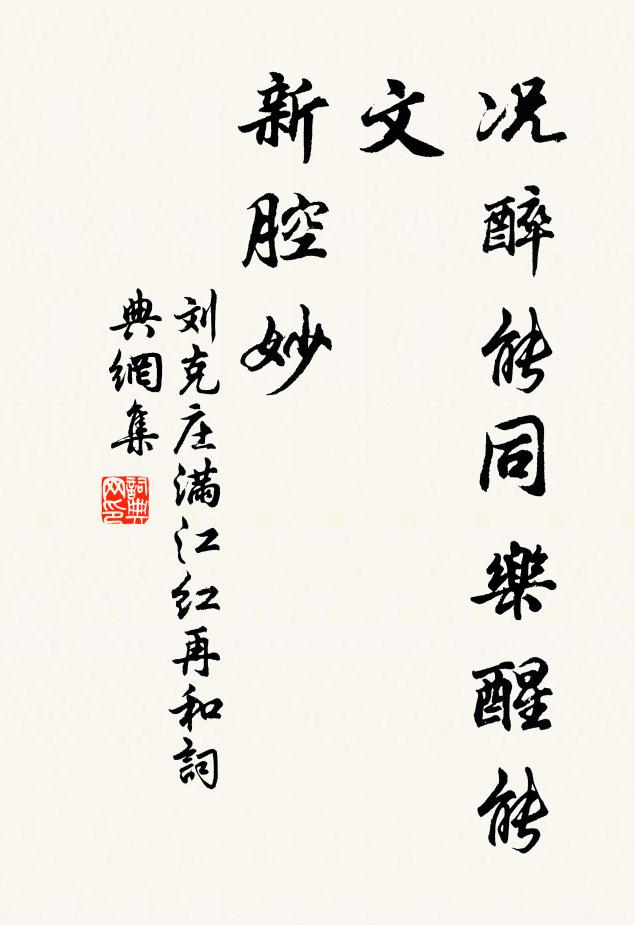 况醉能同樂醒能
文
新腔妙
刘克庄满江红再和詞
典網集
詞典
网印